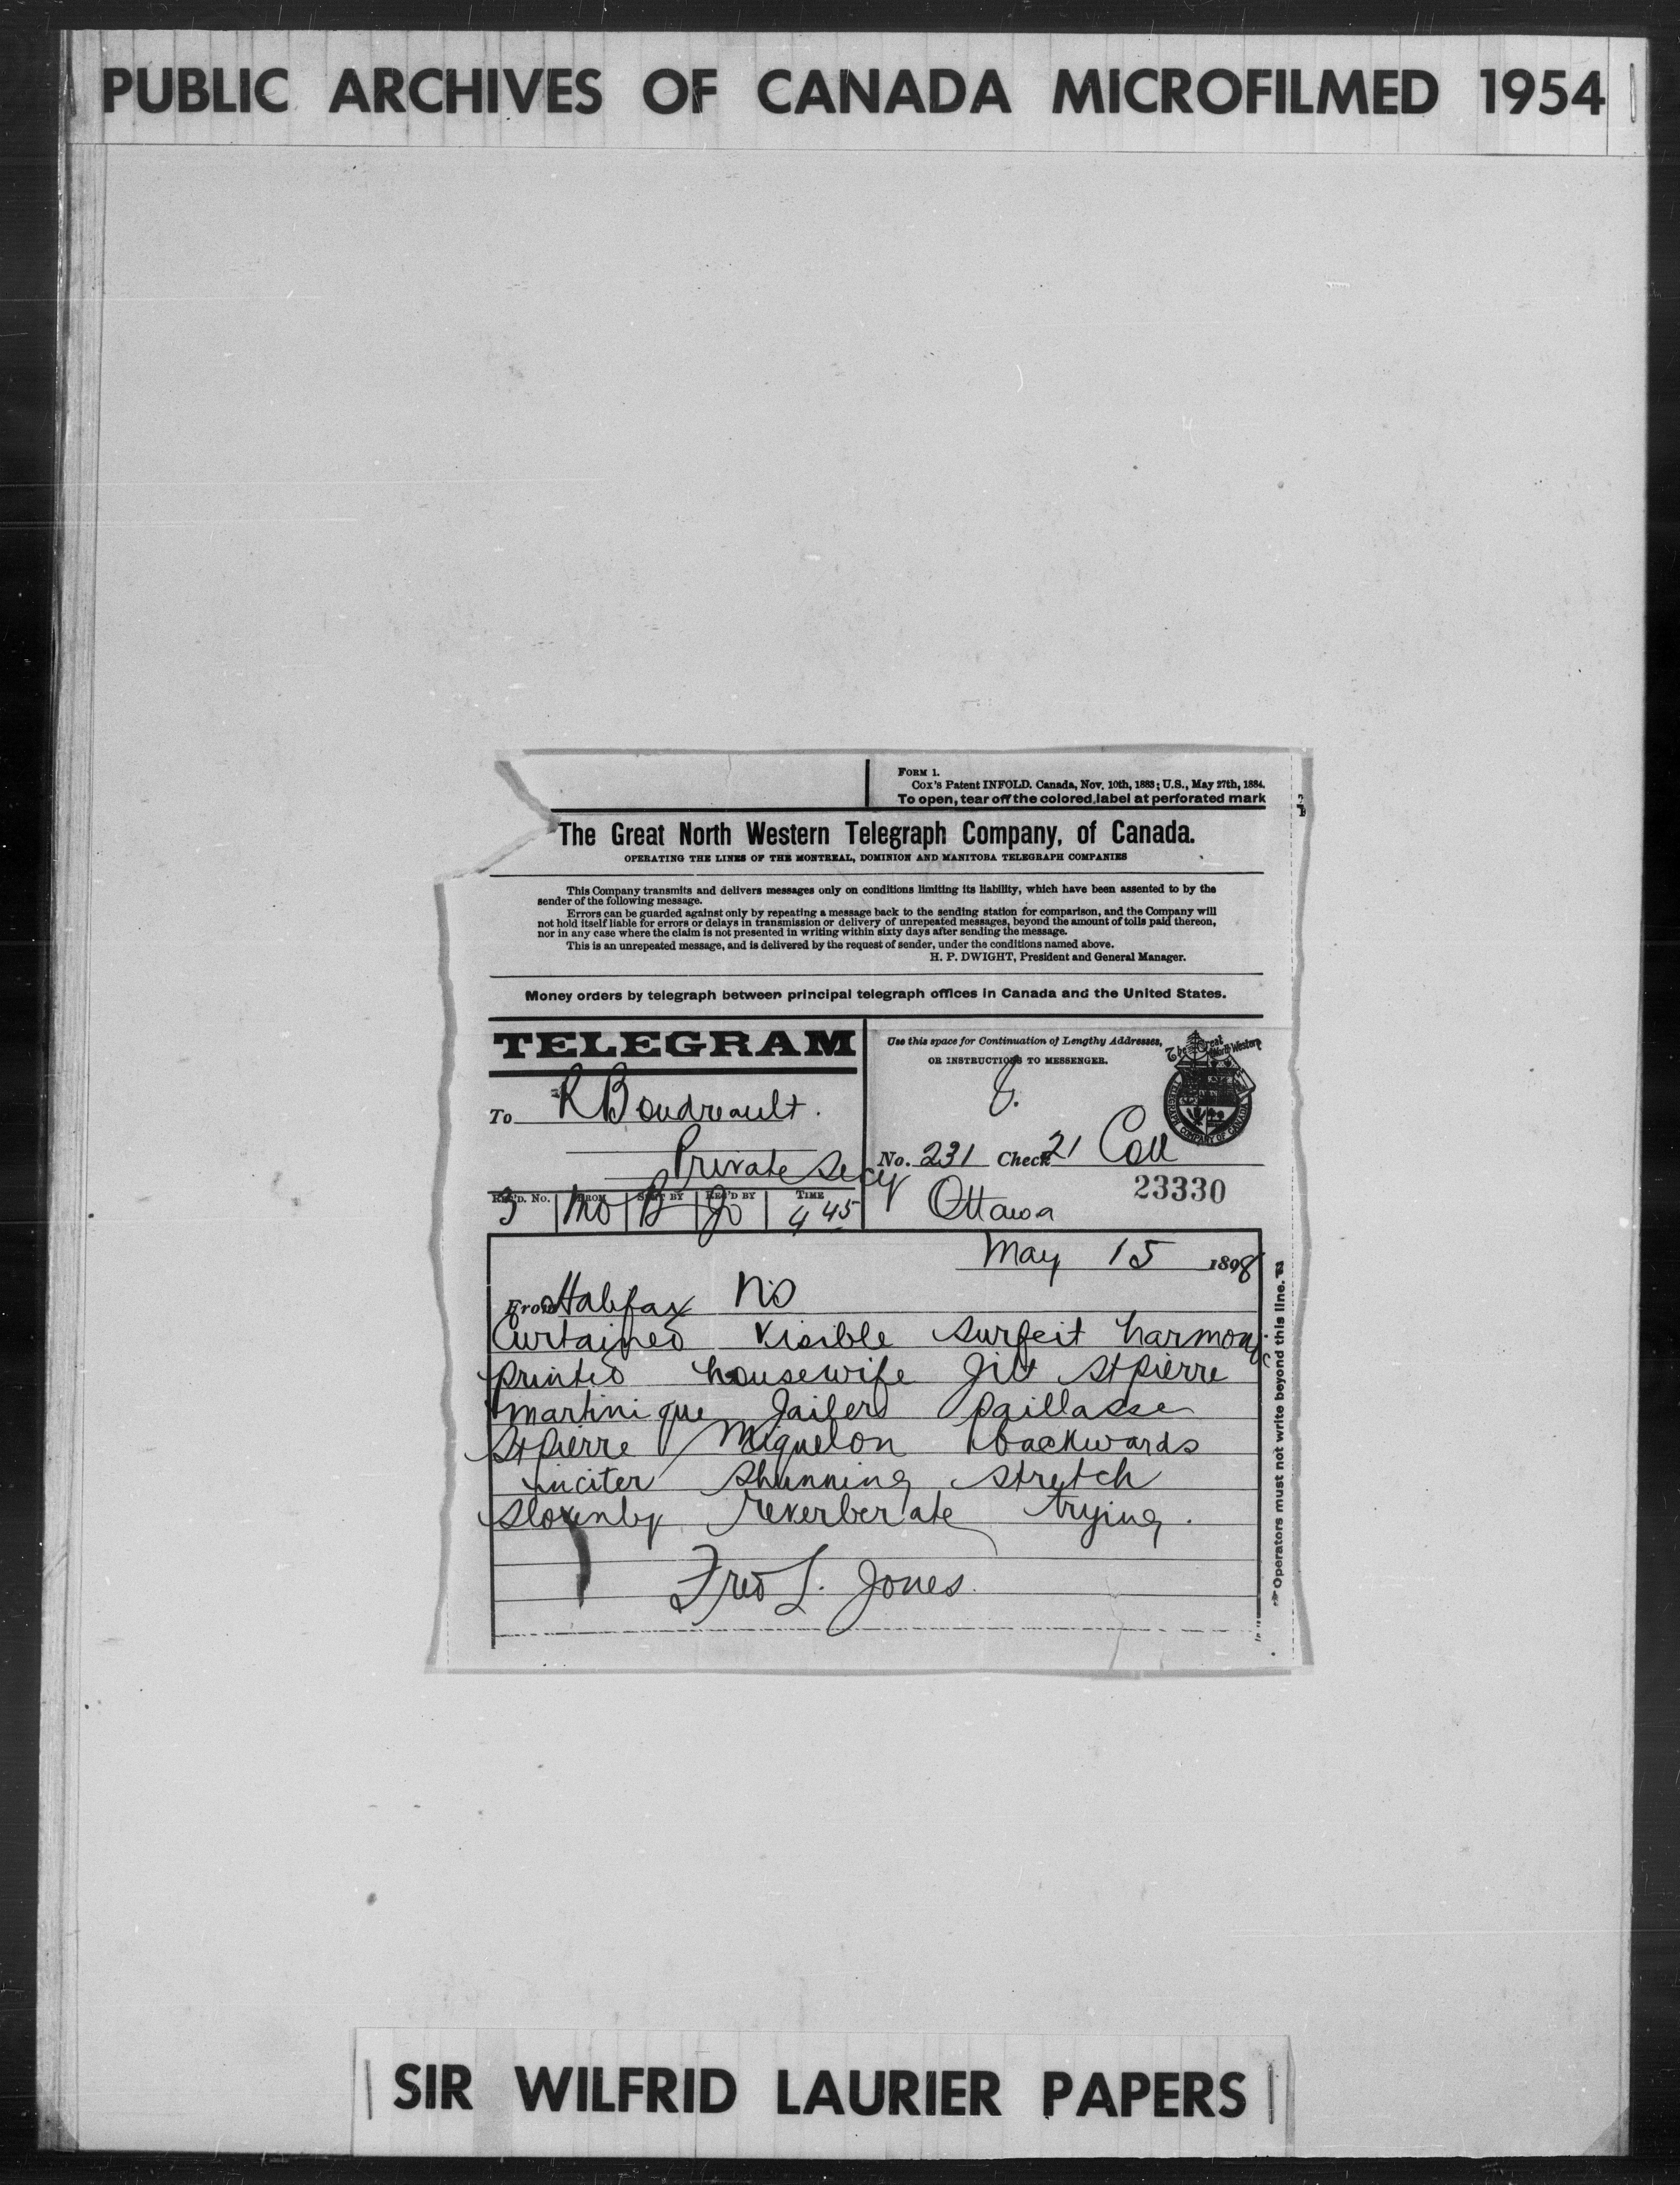 PUBLIC ARCHIVES OF CANADA MICROFILMED 1954
FORM 1.
Cox's Patent INFOLD. Canada, Nov. 10th, 1883; U.S., May 27th, 1884.
To open, tear off the colored label at perforated mark
The Great North Western Telegraph Company, of Canada.
OPERATING THE LINES OF THE MONTREAL, DOMINION AND MANITOBA TELEGRAPH COMPANIES
This Company transmits and delivers messages only on conditions limiting its liability, which have been assented to by the
sender of the following message.
Errors can be guarded against only by repeating a message back to the sending station for comparison, and the Company will
not hold itself liable for errors or delays in transmission or delivery of unrepeated messages, beyond the amount of tolls paid thereon,
nor in any case where the claim is not presented in writing within sixty days after sending the message.
This is an unrepeated message, and is delivered by the request of sender, under the conditions named above.
H. P. DWIGHT, President and General Manager.
Money orders by telegraph between principal telegraph offices in Canada and the United States.
TELEGRAM
To R Boudreault.
Private Secy
REC'D. No. FROM SENT BY REC'D BY TIME
4 45
Use this space for Continuation of Lengthy Addresses,
OR INSTRUCTIONS TO MESSENGER.
The Great North Western
TELEGRAPH COMPANY OF CANADA
No. 231 Check 21 Coll
23330
Ottawa
May 15 1898
From Halifax NS
Curtained visible surfeit harmony
printed housewife Jilt St Pierre
Martinique Jailers Paillasse
St Pierre Miquelon backwards
inciter shunning stretch
slovenly reverberate trying.
Fred L. Jones.
Operators must not write beyond this line.
SIR WILFRID LAURIER PAPERS